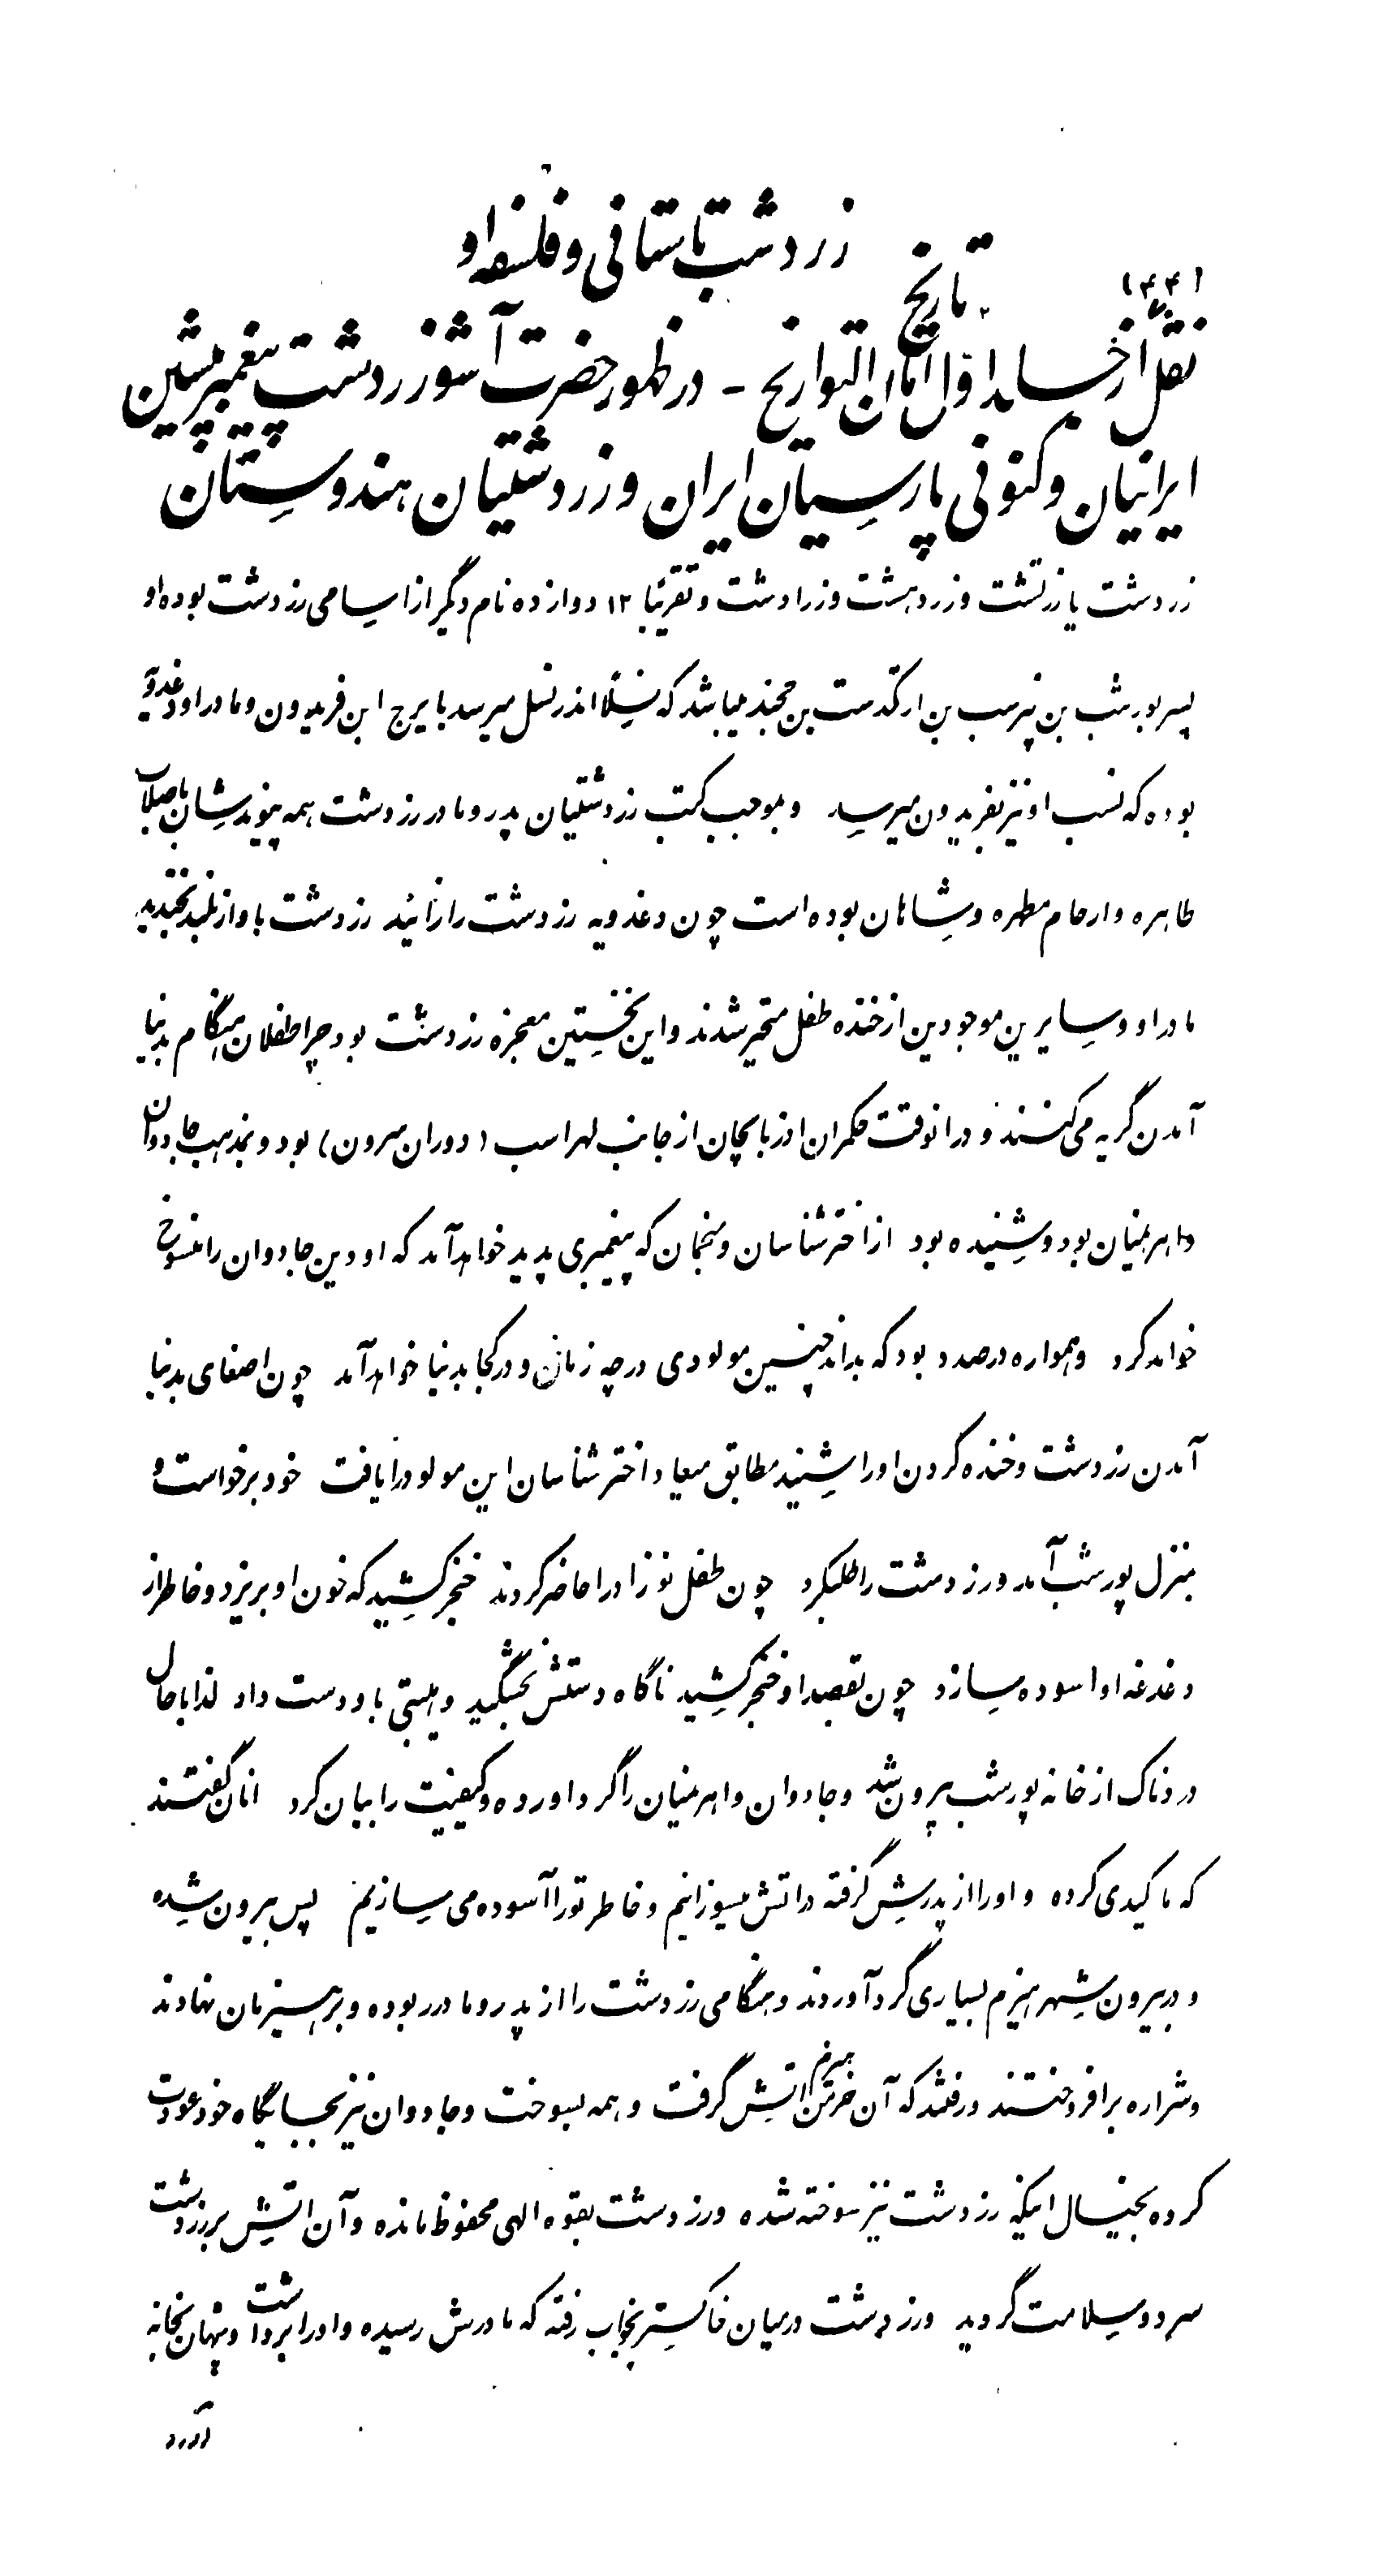 زردشت باستانی و فلسفه او
تاریخ
(۴۴۱
نقل از جلد اول امان التواریخ - در ظهور حضرت آشوزردشت پیغمبر پیشین
ایرانیان و کنونی پارسیان ایران و زردشتیان هندوستان
زردشت یا زرتشت و زردهشت و زرادشت و تقریبا ۱۲ دوازده نام دیگر از اسامی زردشت بوده او
پسر پورشب بن پترسب بن ارکدست بن میباشد که نسلا اندر نسل میرسد بایرج ابن فریدون و مادر او دغدویه
بوده که نسب او نیز بفریدون میرسد و بموجب کتب زردشتیان پدر و مادر زردشت همه پیوندشان باصلاب
طاهره و ارحام مطهره و شاهان بوده است چون دغدویه زردشت را زائید زردشت باواز بلند بخندید
مادر او و سایرین موجودین از خنده طفل متحیر شدند و این نخستین معجزه زردشت بود چرا طفلان هنگام بدنیا
آمدن گریه می کنند و در انوقت حکمران اذربایجان از جانب لهراسب (دوران سرون) بود و بمذهب جادوان
و اهرمنیان بود و شنیده بود از اخترشناسان و منجمان که پیغمبری پدید خواهد آمد که او دین جادوان را منسوخ
خواهد کرد و همواره در صدد بود که بداند چنین مولودی در چه زمان و در کجا بدنیا خواهد آمد چون اصغای بدنیا
آمدن زردشت و خنده کردن او را شنید مطابق میعاد اخترشناسان این مولود را یافت خود برخواست و
بمنزل پورشب آمد و زردشت را طلبکرد چون طفل نوزاد را حاضر کردند خنجر کشید که خون او بریزد و خاطر از
دغدغه او اسوده سازد چون بقصد او خنجر کشید ناگاه دستش بخشگید و هیبتی باو دست داد لذا باحال
دردناک از خانه پورشب بیرون شد و جادوان و اهرمنیان را گرد اورده و کیفیت را بیان کرد انان گفتند
که ما کیدی کرده و او را از پدرش گرفته در اتش میسوزانیم و خاطر تو را آسوده می سازیم پس بیرون شده
و در بیرون شهر هیزم بسیاری گرد آوردند و هنگامی زردشت را از پدر و مادر ربوده و بر هیزمان نهادند
و شراره برافروختند و رفتند که آن خرمن هیزم اتش گرفت و همه بسوخت و جادوان نیز بجایگاه خود عودت
کرده بخیال اینکه زردشت نیز سوخته شده و زردشت بقوه الهی محفوظ مانده و آن اتش بر زردشت
سرد و سلامت گردید و زردشت در میان خاکستر بخواب رفته که مادرش رسیده و او را برداشت و پنهان بخانه
آورد